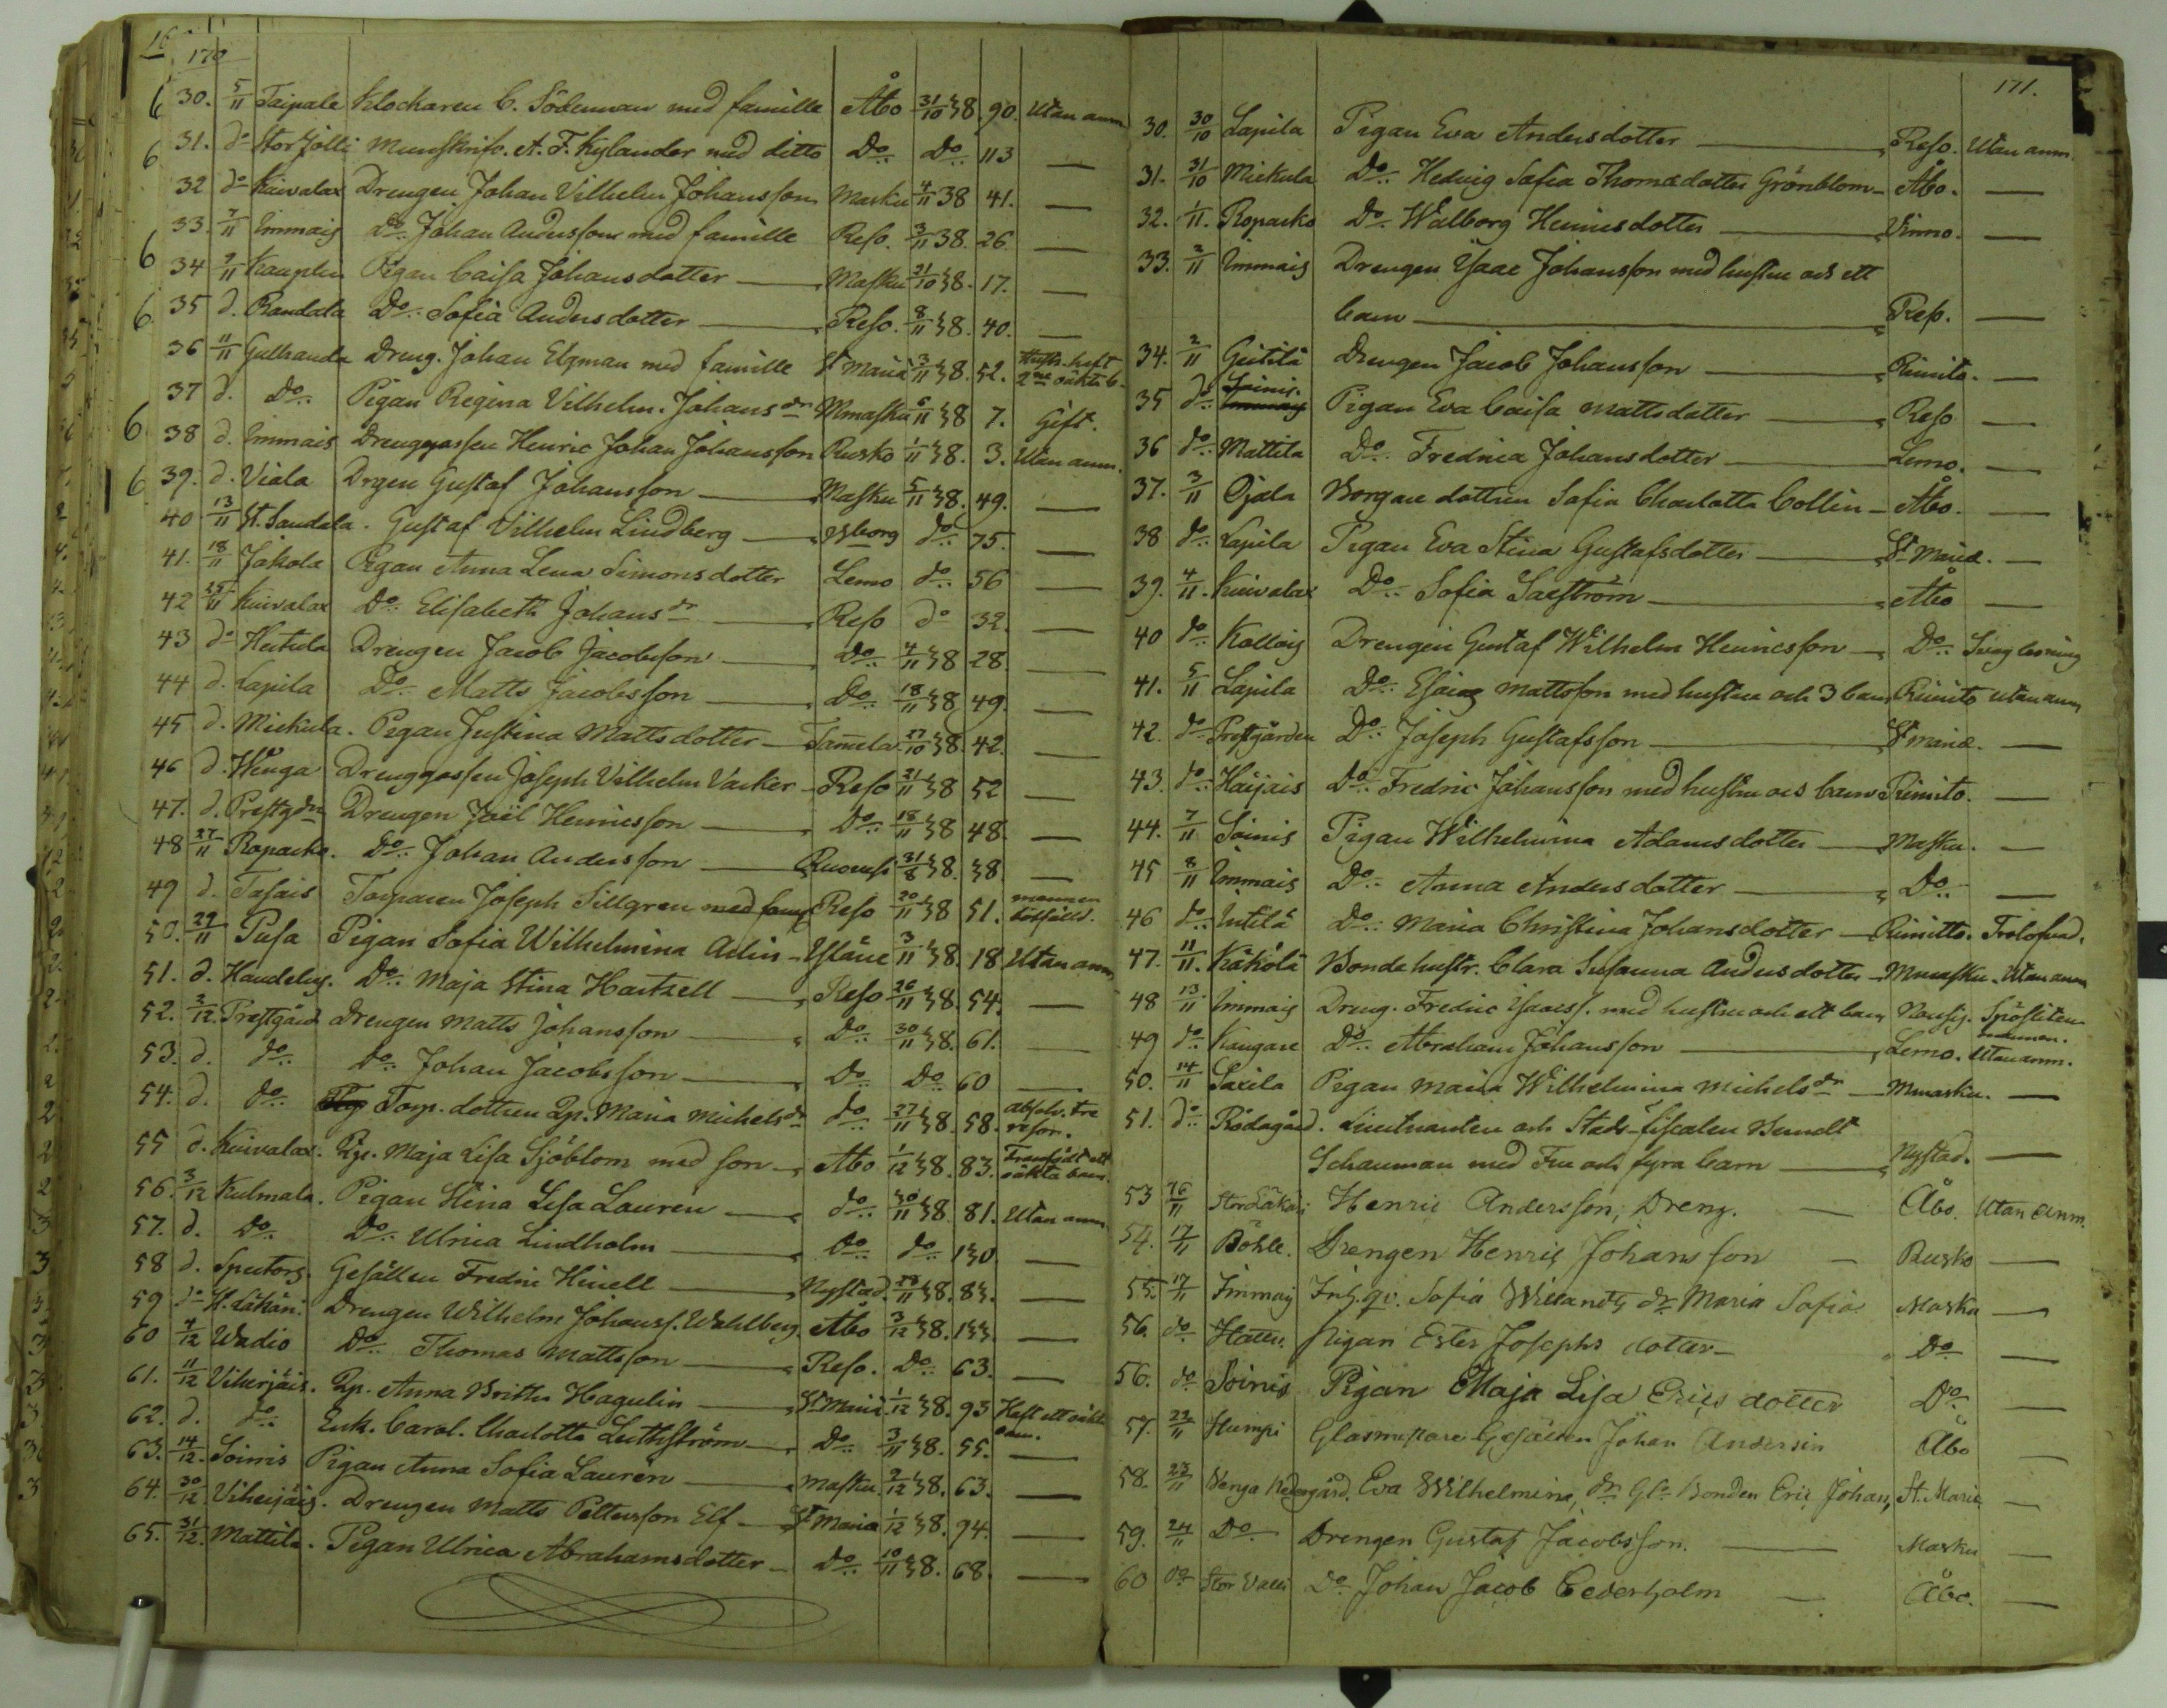 16
170
30. 5/11 Taipale Klockaren C. Söderman med famille Åbo 31/10 38. 90. Utan anm
31. do Stor Jölli Munskrifv. A. F. Kylander med ditto Do Do 113 —
32 do Kuivalax Drengen Johan Vilhelm Johansson Masku 4/11 38 41. —
33. 7/11 Immais Do Johan Andersson med famille Reso. 3/11 38. 26 —
34 7/11 Pigan Caisa Johansdotter — Masku 31/10 38. 17. —
35 d. Randala Do Sofia Andersdotter — Reso. 8/11 38. 40. —
36 11/11 Gullranda Dreng. Johan Elgman med famille St Mariæ 3/11 38. 52.
37 d. Do Pigan Regina Vilhelm. Johansdr Mmasku 6/11 38 7. Gift.
38 d. Immais Drenggossen Henric Johan Johansson Rusko 1/11 38. 3. Utan anm.
39. d. Viala Drgen Gustaf Johansson — Masku 5/11 38. 49. —
40 13/11 St. Sandala. Gustaf Vilhelm Lindberg — Esborg do 75. —
41. 18/11 Jakola Pigan Anna Lena Simonsdotter Lemo do 56 —
42 25/11 Kuivalax Do Elisabeth Johansdr — Reso do 32. —
43 do Heitula Drengen Jacob Jacobsson — Do 4/11 38 28. —
44 d. Lapila Do Matts Jacobsson — Do 18/11 38 49. —
45 d. Miekula. Pigan Justina Mattsdotter — Tamela 27/10 38. 42. —
46 d. Wenga Drenggossen Joseph Vilhelm Vacker — Reso 21/11 38 52 —
47. d. Prestgdn Drengen Joël Henricsson — Do 18/11 38 48. —
48 27/11 Ropacko. Do Johan Andersson — 31/8 38. 38. —
49 d. Tasais Torparen Joseph Sillgren med fam Reso 20/11 38 51. mannen
50. 29/11 Pusa Pigan Sofia Wilhelmina Adin — Yläne 3/11 38. 18 Utan anm
51. d. Do Maja Stina Hartzell — Reso 26/11 38. 54. —
52. 2/12. Prestgård Drengen Matts Johansson — Do 30/11 38. 61. —
53. d. do Do Johan Jacobsson — Do Do 60 —
54. d. do Torp. dottren Qp. Maria Michelsdr do 27/11 38. 58. absolv. tre resor.
55 d. Kuivalax. Qp. Maja Lisa Sjöblom med son — Åbo 1/12 38. 83. Framfödt ett oäkta barn.
56. 3/12 Kulmala. Pigan Stina Lisa Lauren — do 30/11 38 81. Utan anm
57. d. Do Do Ulrica Lindholm — Do do 130. —
58 d. Spectors. Gesällen Fredric Hinell — Nystad. 28/11 38. 83. —
59 do St. Läkäri. Drengen Wilhelm Johanss. Wahlberg. Åbo 3/12 38. 133. —
60 4/12 Wadio Do Thomas Mattsson — Reso. Do 63. —
61. 11/12 Viherjäis. Qp. Anna Britta Hagulin — St Mariæ 1/12 38. 93 Haft ett oäkta barn.
62. d. do Enk. Carol. Charlotta Luthström — Do 3/11 38. 55. —
63. 14/12. Soinis Pigan Anna Sofia Lauren — Masku. 9/12 38. 63. —
64. 30/12 Viherjäis. Drengen Matts Pettersson Elf — St Mariæ 1/12 38. 94. —
65. 31/12. Mattila. Pigan Ulrica Abrahamsdotter — Do 10/11 38. 68. —
171.
30. 30/10 Lapila Pigan Eva Andersdotter — Reso. Utan anm.
31. 31/10 Miekula Do Hedvig Sofia Thomædotter Grönblom — Åbo. —
32. 1/11. Ropacko Do Walborg Henricsdotter — Vinmo. —
33. 2/11 Immais Drengen Isaac Johansson med hustru och ett
barn — Reso. —
34. 2/11 Geitilä Drengen Jacob Johansson — Rimito. —
35 do Soinis. Pigan Eva Caisa Mattsdotter — Reso —
36 do Mattila Do Fredrica Johansdotter — Lemo. —
37. 3/11 Ojala Borgare dottren Sofia Charlotta Collin — Åbo. —
38 do Lapila Pigan Eva Stina Gustafsdotter — St Mariæ. —
39. 4/11. Kuivalax Do Sofia Saxström — Åbo —
40 do Kollois Drengen Gustaf Wilhelm Henricsson — Do Svag läsning
41. 5/11 Lapila Do Esaias Mattsson med hustru och 3 barn Rimito Utan anm
42. do Prestgården Do Joseph Gustafsson — St Mariæ. —
43. do Haijais Do Fredric Johansson med hustru och barn Rimito. —
44. 7/11 Soinis Pigan Wilhelmina Adamsdotter — Masku. —
45 8/11 Immais Do Anna Andersdotter — Do —
46 do Intilä Do Maria Christina Johansdotter — Rimitto. Trolofvad.
47. 11/11. Käkölä Bonde hustr. Clara Susanna Andersdotter — Mmasku. Utan anm
48 13/11 Immais Dreng. Fredric Isacss. med hustru och ett barn Nousis.
49 do Kangare Do Abraham Johansson — Lemo. Utan anm.
50. 14/11 Saxila Pigan Maria Wilhelmina Michelsdr — Mmasku. —
51. do Rödagård. Lieutnanten och Stads-fiscalen Berndt
Schauman med Fru och fyra barn — Nystad. —
53 16/11 Stor Läkäri Henric Andersson, Dreng. — Åbo. Utan Anm.
54. 17/11 Böhle. Drengen Henric Johansson — Rusko —
55. 17/11 Immais Inh. qv. Sofia Willandts dr Maria Sofia. Masku —
56. do Hättu. Pigan Ester Josephs dotter — Do —
56. do Soinis Pigan Maja Lisa Erics dotter Do —
57. 22/11 Humpi Glasmästare Gesällen Johan Andersin Åbo —
58. 23/11 Wenga Nedergård. Eva Wilhelmina, dr Gl. Bonden Eric Johans, St. Mariæ —
59. 24/11 Do Drengen Gustaf Jacobsson. — Masku —
60 do Stor Valli Do Johan Jacob Cederholm — Åbo. —